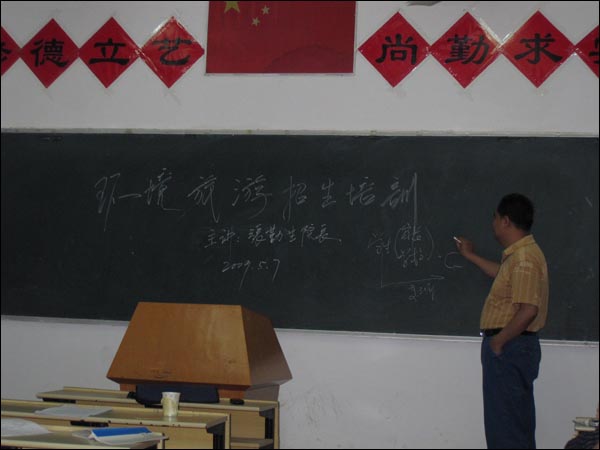 德立艺 尚勤求
环境旅游招生培训
主讲：张勤生院长
2009.5.7